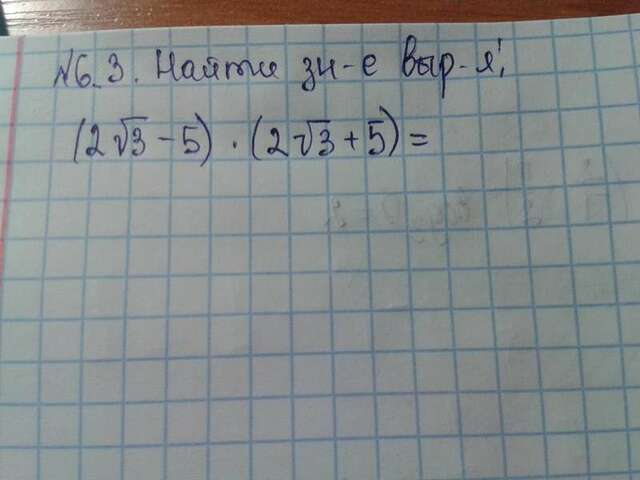 №6.3. Найти зн-е выр-я:
(2√3 - 5) · (2√3 + 5) =